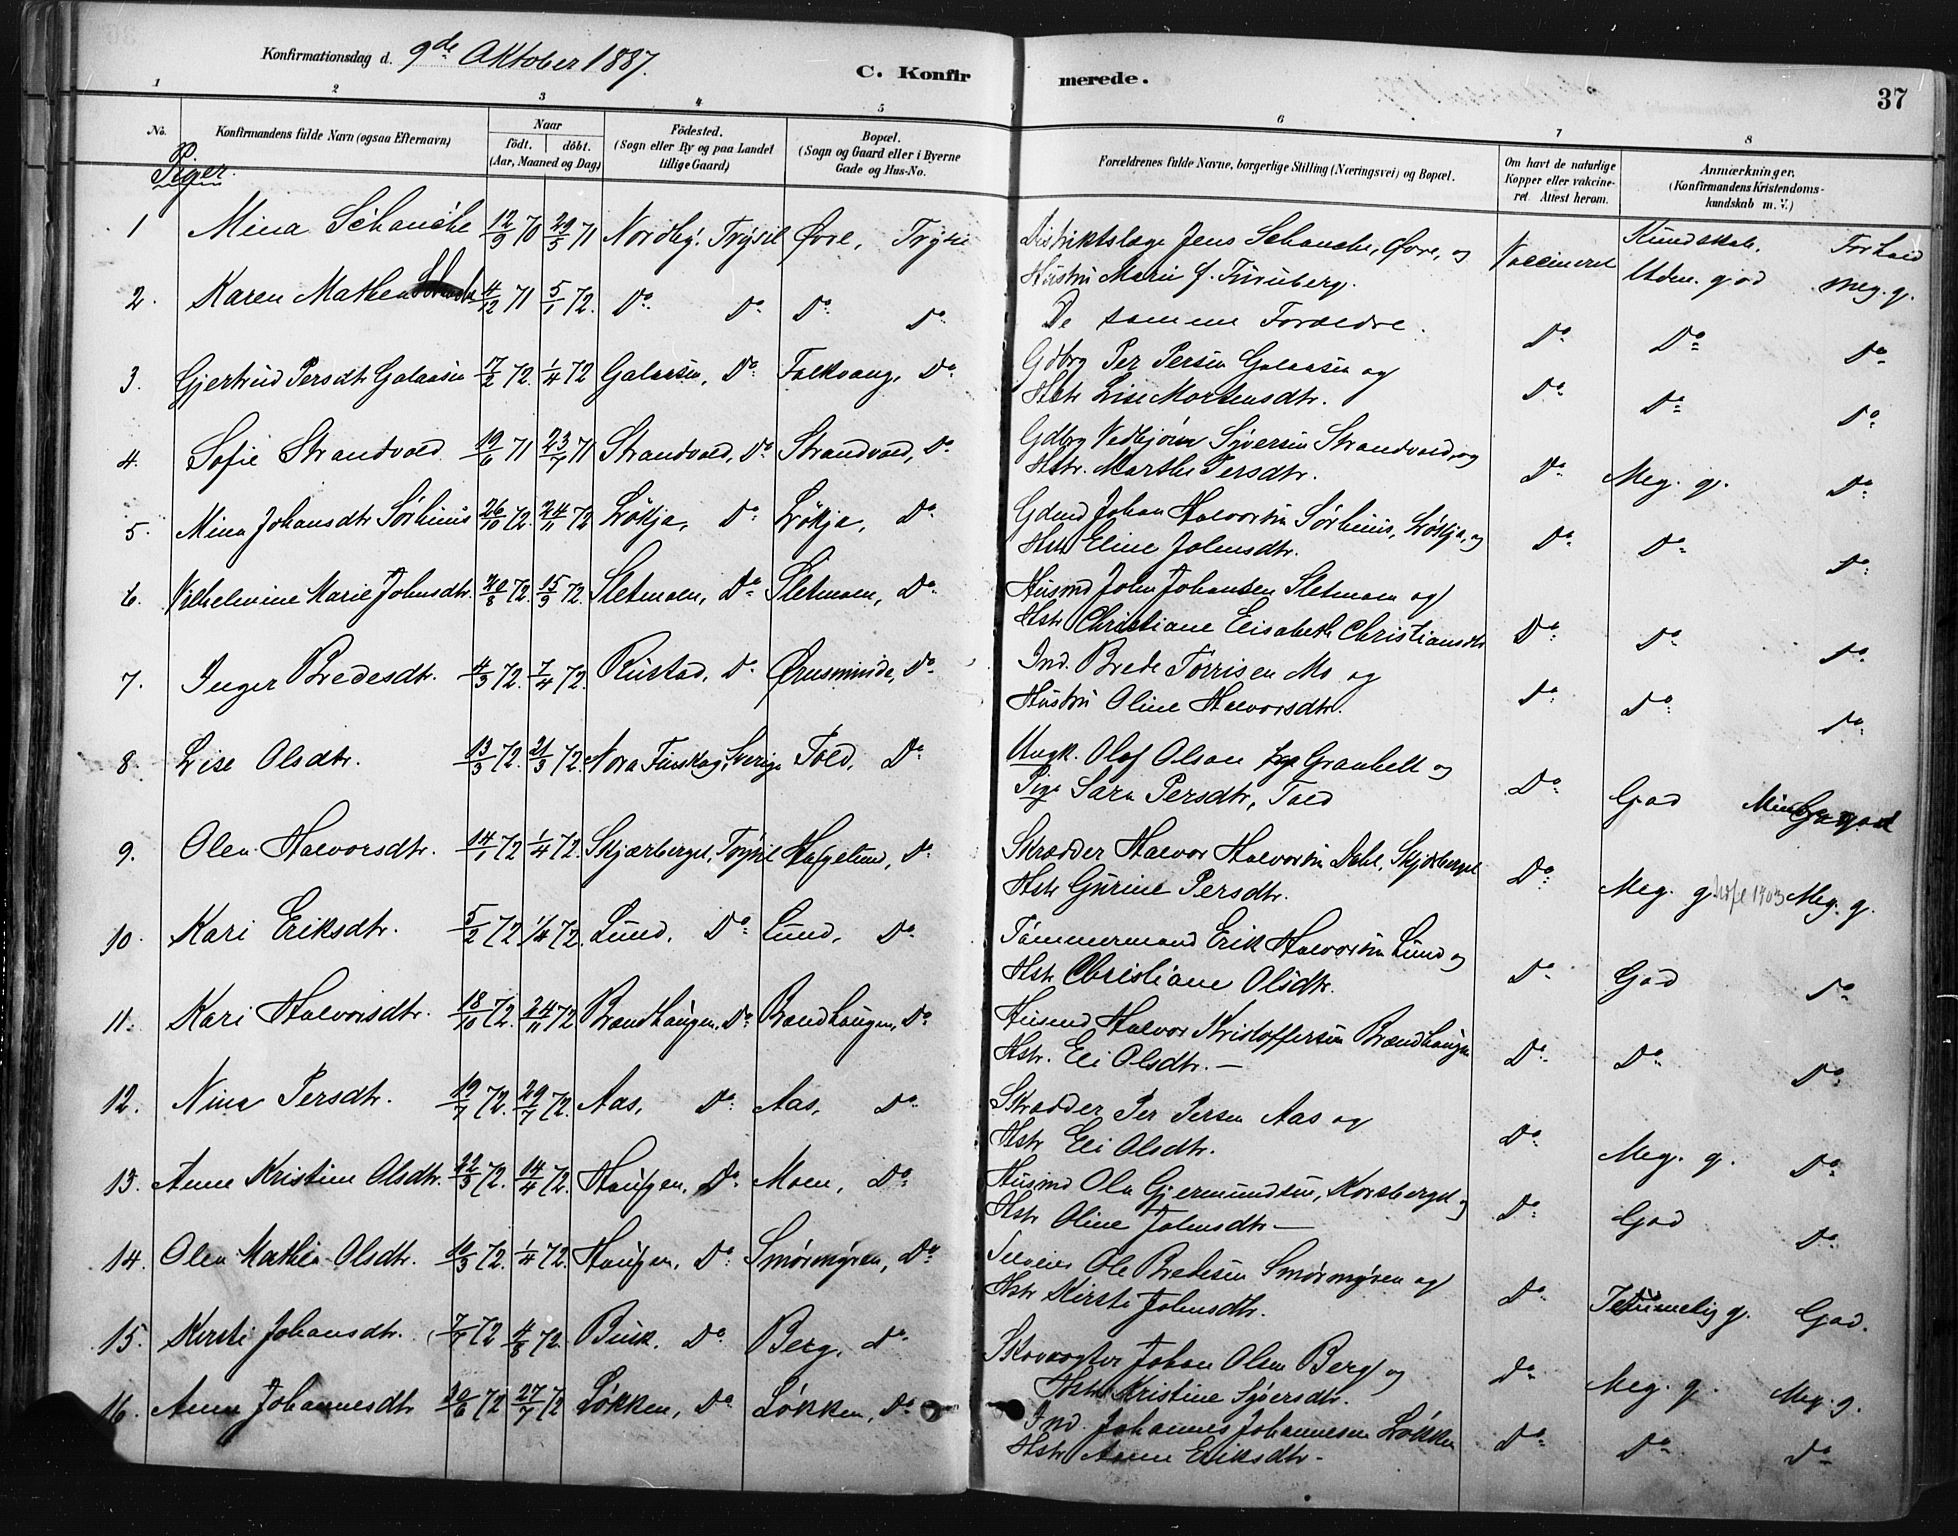 Konfirmationsdag d. 9de Oktober 1887.
C. Konfirmerede.
37
1 2 3 4 5 6 7 8
No.
Konfirmandens fulde Navn (ogsaa Efternavn)
Naar
födt. döbt.
(Aar, Maaned og Dag)
Födested.
(Sogn eller By og paa Landet
tillige Gaard)
Bopæl.
(Sogn og Gaard eller i Byerne
Gade og Hus-No.
Forældrenes fulde Navne, borgerlige Stilling (Næringsvei) og Bopæl.
Om havt de naturlige
Kopper eller vakcine-
ret. Attest herom.
Anmærkninger.
(Konfirmandens Kristendoms-
kundskab m. V.)
Piger.
Kundskab. Forhold
1 Mina Schanche 12/9 70 29/5 71 Nordby, Trysil Øvre, Trysil Distriktslæge Jens Schanche, Øvre, og Vaccineret Uden. god meg. g.
Hustru Marie f.
2. Karen Mathea Schanche 4/12 71 5/1 72. Do Do Do Do De samme Forældre. Do Do Do
3. Gjertrud Persdtr Galaasen 7/2 72. 1/4 72 Galaasen, Do Folkvang, Do Gdbrg Per Persen Galaasen og Do Do Do
Hstr Lise Mortensdtr.
4. Sofie Strandvold 19/6 71 23/7 71 Strandvold, Do Strandvold, Do Gdbrg Vedbjörn Syversen Strandvold, og Do Meg. g. Do
Hstr. Marthe Persdtr.
5. Mina Johansdtr Sörhuus 26/10 72. 24/11 72 Lökja, Do Lökja, Do Gdmd Johan Halvorsen Sörhuus, Lökja, og Do Do Do
Hstr Eline Johnsdtr.
6. Vilhelmine Marie Johnsdtr. 20/8 72. 15/9 72. Sletmoen, Do Sletmoen, Do Husmd John Johansen Sletmoen og Do Do Do
Hstr Christiane Elisabeth Christiansdtr
7. Inger Bredesdtr. 4/3 72. 7/4 72. Rustad, Do Ørnsminde, Do Ind. Brede Torrisen Mo og Do Do Do
Hustru Oline Halvorsdtr.
8. Lise Olsdtr. 13/3 72. 21/3 72. Nora Finskog, Sverige Told, Do Ungk. Olof Olson Granhelt og Do God
Pige Sara Persdtr, Told
9. Olea Halvorsdtr. 14/1 72 1/4 72. Skjærberget, Trysil Hafjelund, Do Skrædder Halvor Halvorsen Dahl, Skjærberget Do Meg. g. 1903 Meg. g.
Hstr Gurine Persdtr.
10. Kari Eriksdtr. 5/2 72 1/4 72. Lund, Do Lund, Do Tömmermand Erik Halvorsen Lund og Do God Do
Hstr Christiane Olsdtr.
11. Kari Halvorsdtr. 18/10 72. 24/11 72 Brændhaugen, Do Brændhaugen, Do Husmd Halvor Kristoffersen Brændhaugen Do Do Do
Hstr. Eli Olsdtr. —
12. Nina Persdtr. 19/7 72. 29/7 72. Aas, Do Aas, Do Skrædder Per Persen Aas og Do Meg. g. Do
Hstr Eli Olsdtr.
13. Anne Kristine Olsdtr. 22/3 72. 14/4 72. Haugen, Do Moen, Do Husmd Ola Gjermundsen, Korsberget og Do God Do
Hstr Oline Johnsdtr —
14. Olea Mathea Olsdtr. 10/3 72. 1/4 72. Haugen, Do Smörmyren, Do Selveier Ole Bredesen Smörmyren og Do Temmelig g. God.
Hstr Kirsti Johnsdtr.
15. Kirsti Johansdtr. 7/7 72 4/8 72. Busk. Do Berg, Do Skovvogter Johan Olsen Berg og Do Meg. g. Meg. g.
Hstr Kristine Syversdtr.
16. Anna Johannesdtr 20/6 72 27/7 72 Løkken, Do Løkken, Do Ind. Johannes Johannesen Løkken Do Do Do
Hstr Anne Eriksdtr.